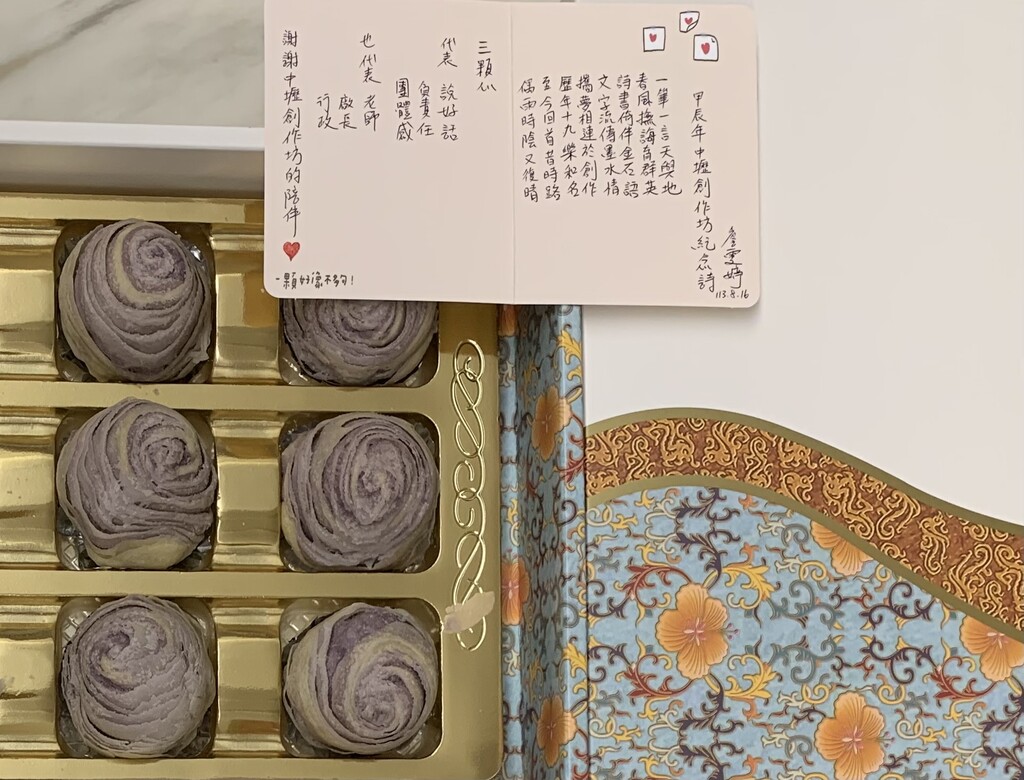 甲辰年中壢創作坊紀念詩
詹雯婷
113.8.16
一筆一言天與地
春風撫誨育群英
詩書倚伴金石語
文字流傳墨水情
攜夢相連於創作
歷年十九樂和名
至今回首昔時路
偶雨時陰又復晴
三顆心
代表 說好話
負責任
團體感
也代表 老師
廠長
行政
謝謝中壢創作坊的陪伴
一顆好像不夠!